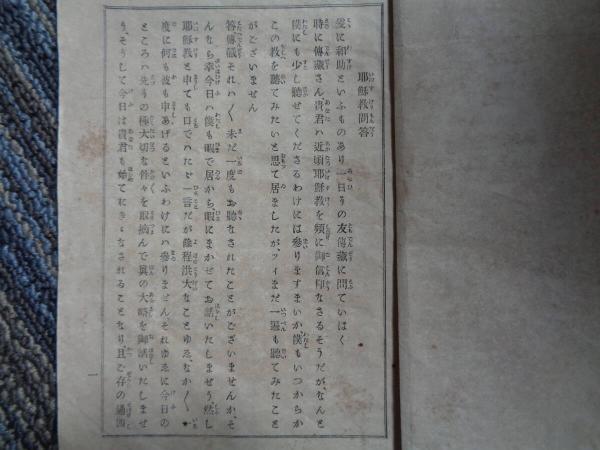 耶穌教問答
爰に和助といふものあり一日その友傳藏に問ていはく
時に傳藏さん貴君ハ近頃耶穌教を頻に御信仰なさるそうだが、なんと
僕にも少し聽せてくださるわけには參りますまいか、僕もいつからか
この教を聽てみたいと思て居ましたが、ツイまだ一遍も聽てみたこと
がございません
答傳藏それハ〱未だ一度もお聽なされたことがございませんか、そ
んなら幸今日ハ僕も暇で居から、暇にまかせてお話いたしませう、然し
耶穌教と申ても口でハたゞ一言だが餘程洪大なことゆゑ、なか〱一
度に何も彼も申あげるといふわけにハ參りません、それゆゑに今日の
ところハ先その極大切な骨々を取摘んで眞の大略を御話いたしませ
う、そうして今日は貴君も始てにきゝなされることなり、且ご存の通西
一